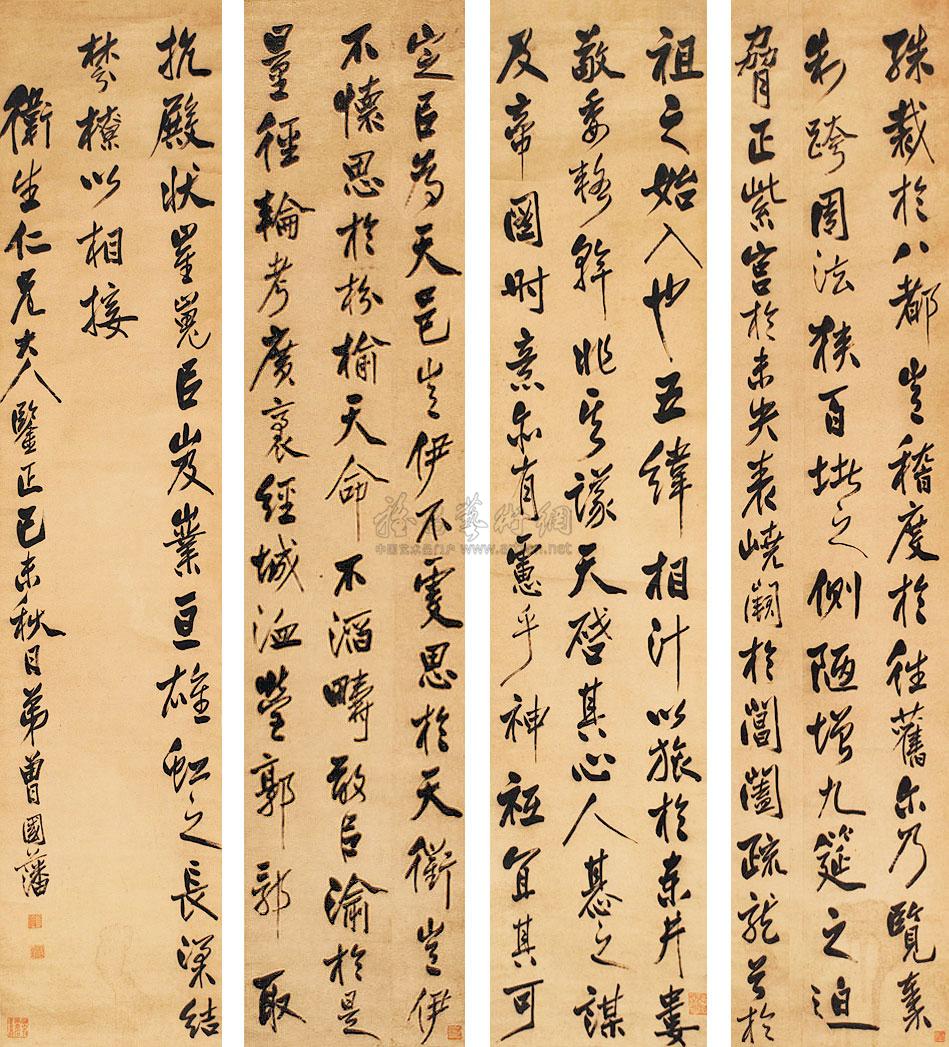 殊裁於八都豈稽度於往舊尔乃覽秦
制跨周法狹百堵之側陋增九筵之迫
脅正紫宮於未央表嶢闕於閶闔疏龍首於
祖之始入也五緯相汁以旅於東井婁
敬委輅幹非其議天啓其心人惎之謀
及帝圖時意亦有慮乎神祇宜其可
定㠯為天邑豈伊不虔思於天衢豈伊
不懷思於枌榆天命不滔疇敢㠯渝於是
量徑輪考廣袤經城洫營郭郛取
抗殿狀崔嵬㠯岌嶪亘雄虹之長梁結
棼橑以相接
衛生仁兄大人鑒正己未秋日弟曾國藩
中国艺术品门户